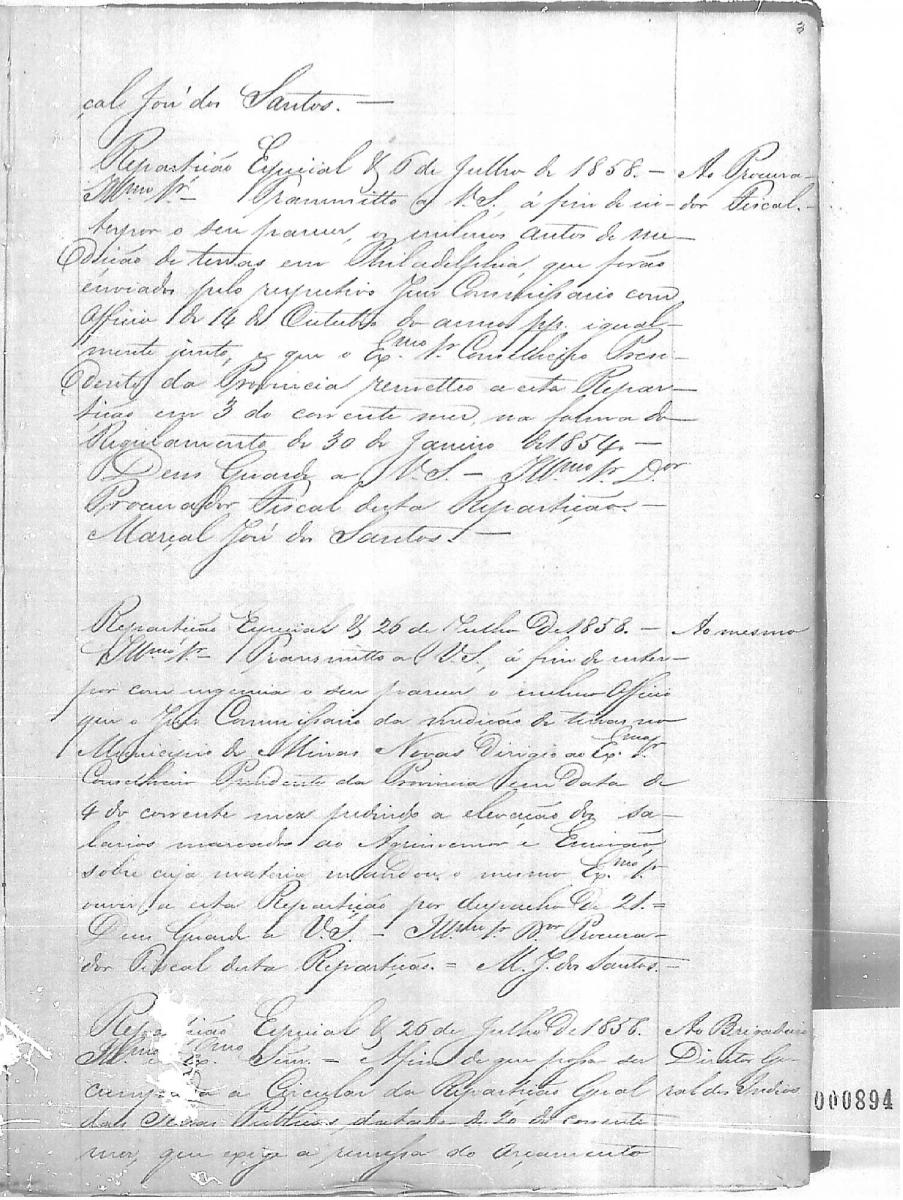 3
çal José dos Santos. —
Repartição Especial &. 6 de Julho de 1858. — Ao Procura-
Illmo Sr. — Transmitto a V.S., á fim de in- dor Fiscal. —
terpor o seu parecer, os inclusos autos de me-
dição de terras em Philadelphia, que forão
enviados pelo respectivo Juiz Commissario com
Officio de 14 de Outubro do anno pp. igual-
mente junto, e que o Exmo Sr. Conselheiro Presi-
dente da Provincia remetteo a esta Repar-
tição em 3 do corrente mez, na forma do
Regulamento de 30 de Janeiro de 1854. —
Deus Guarde a V.S. — Illmo Sr. Dor
Procurador Fiscal desta Repartição. —
Marçal José dos Santos. —
Repartição Especial &. 26 de Julho de 1858. — Ao mesmo
Illmo Sr. Transmitto a V.S., á fim de inter-
por com urgencia o seu parecer o incluso Officio
que o Juiz Commissario da medição de terras no
Municipio de Minas Novas dirigio ao Exmo Sr.
Conselheiro Presidente da Provincia em data de
4 do corrente mez pedindo a elevação dos sa-
larios marcados ao Agrimensor e Escrivão,
sobre cuja materia mandou o mesmo Exmo Sr.
ouvir a esta Repartição por despacho de 21. =
Deus Guarde a V.S. — Illmo Sr. Dor Procura-
dor Fiscal desta Repartição. = M. J. dos Santos. —
Repartição Especial &. 26 de Julho de 1858. Ao Brigadeiro
Illmo e Exmo Senr. — Afim de que possa ser Director Ge-
cumprida a Circular da Repartição Geral ral dos Indios
das Terras Publicas, datada de 20 do corrente
mez, que exige a remessa do orçamento
000894